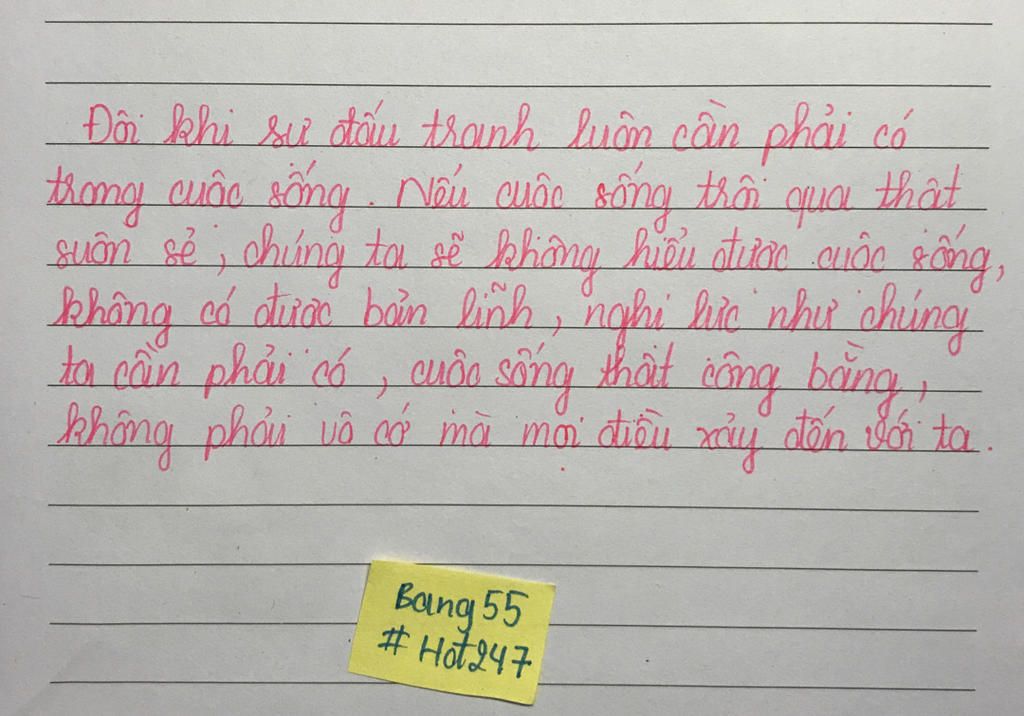 Đôi khi sự đấu tranh luôn cần phải có
trong cuộc sống. Nếu cuộc sống trôi qua thật
suôn sẻ, chúng ta sẽ không hiểu được cuộc sống,
không có được bản lĩnh, nghị lực như chúng
ta cần phải có, cuộc sống thật công bằng,
không phải vô cớ mà mọi điều xảy đến với ta.
Bang 55
# Hot247